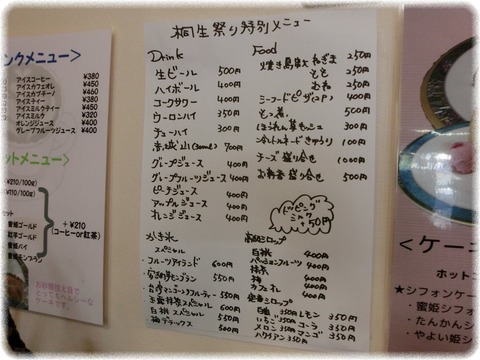 ンクメニュー>
アイスコーヒー ¥380
アイスカフェオレ ¥450
アイスカプチーノ ¥450
アイスティー ¥380
アイスミルクティー ¥450
アイスミルク ¥320
オレンジジュース ¥400
グレープフルーツジュース ¥400
ットメニュー>
(¥210/100g)
(¥110/100g)
セット
蜜姫ゴールド
紅芋ゴールド
蜜姫パイ
+¥210
(コーヒーor紅茶)
とってもヘルシーな
ケーキです。
桐生祭り特別メニュー
Drink
生ビール 500円
ハイボール 400円
コークサワー 400円
ウーロンハイ 350円
チューハイ 300円
赤城山 700円
グレープジュース 400円
グレープフルーツジュース 400円
ピーチジュース 400円
アップルジュース 400円
オレンジジュース 400円
かき氷
スペシャル
フルーツアイランド 600円
台湾マンゴースノーフルーティー 550円
白桃スペシャル 550円
梅デラックス 500円
Food
焼き鳥炭火 ねぎま 250円
もも 250円
むね 250円
シーフードピザ(2P) 400円
もつ煮 500円
ほうれん草キッシュ 300円
チーズ盛り合せ 1000円
お新香盛り合せ 500円
トッピング
ミルク
+50円
シロップ
白桃 400円
パッションフルーツ 400円
抹茶 400円
梅 400円
カフェオレ 400円
定番シロップ
レモン 350円
いちご 350円 コーラ 350円
メロン 350円 マンゴ 350円
ハワイアン 350円
<ケー
ホット
★シフォンケー
・蜜姫シフォ
・たんかんシ
・やよい姫シ